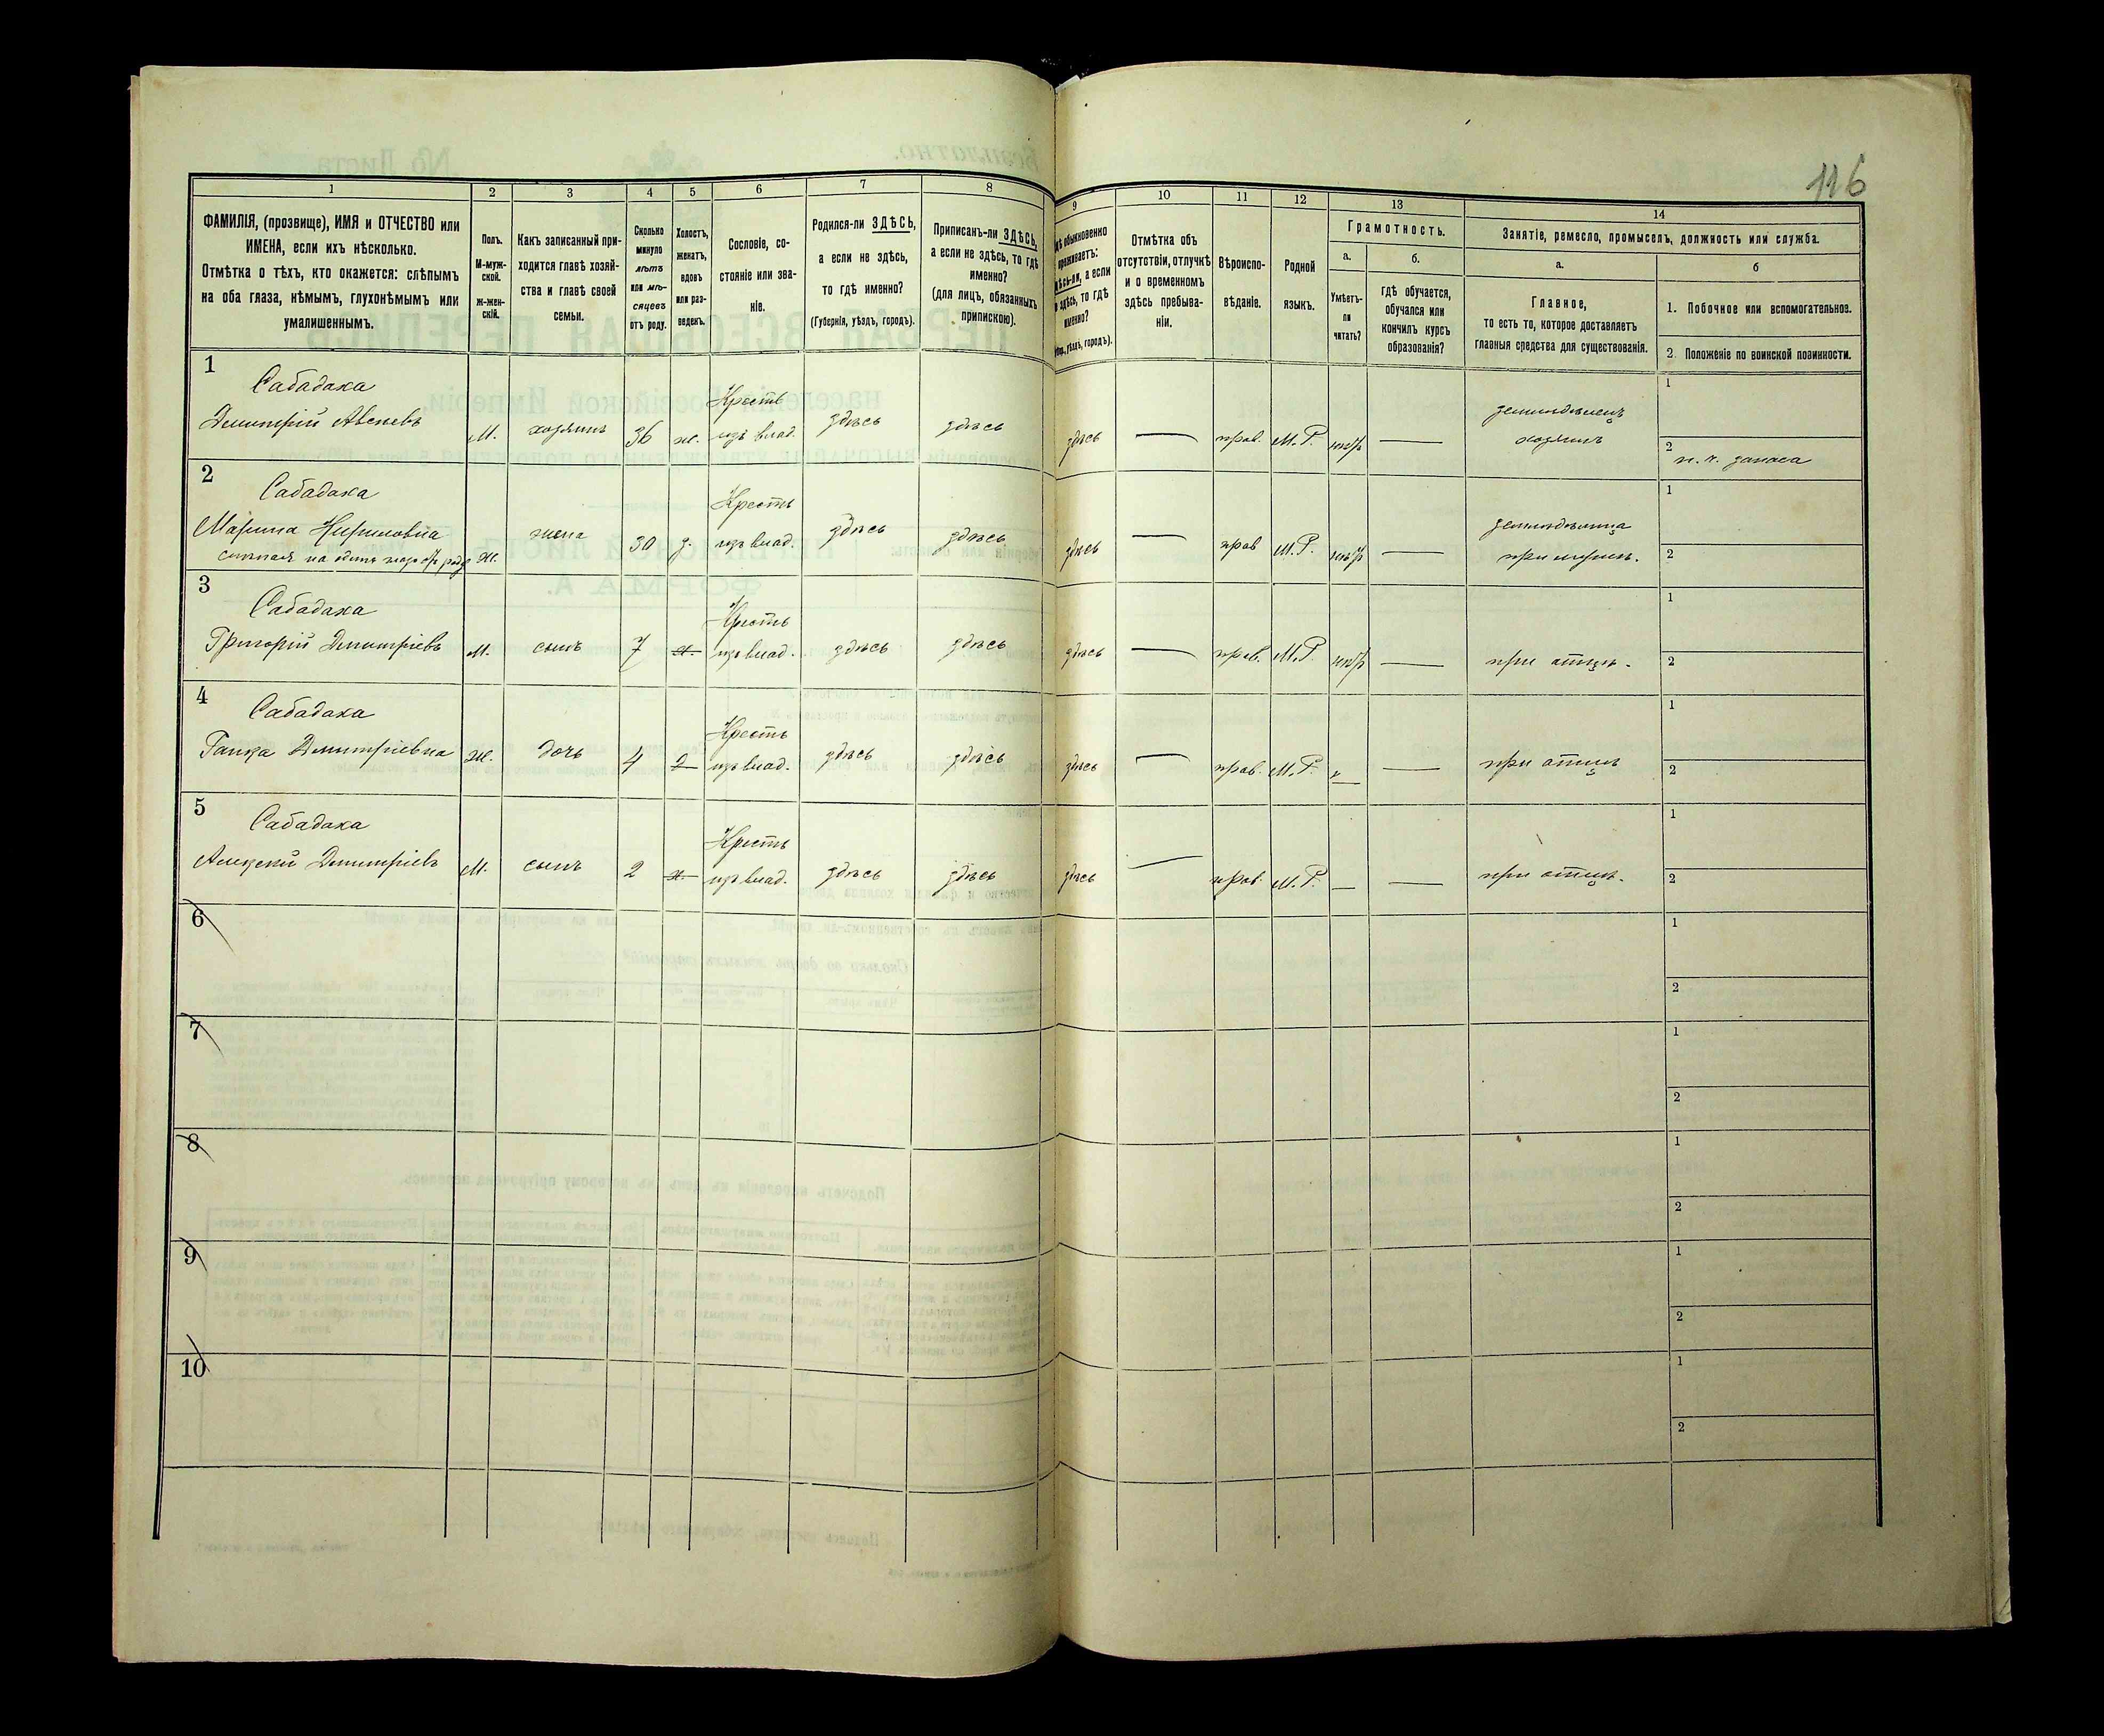 116
1 2 3 4 5 6 7 8 9 10 11 12 13 14
ФАМИЛІЯ, (прозвище), ИМЯ и ОТЧЕСТВО или
ИМЕНА, если ихъ нѣсколько.
Отмѣтка о тѣхъ, кто окажется: слѣпымъ
на оба глаза, нѣмымъ, глухонѣмымъ или
умалишеннымъ.
Полъ.
М-муж-
ской.
Ж-жен-
скій.
Какъ записанный при-
ходится главѣ хозяй-
ства и главѣ своей
семьи.
Сколько
минуло
лѣтъ
или мѣ-
сяцевъ
отъ роду.
Холостъ,
женатъ,
вдовъ
или раз-
веденъ.
Сословіе, со-
стояніе или зва-
ніе.
Родился-ли ЗДѢСЬ,
а если не здѣсь,
то гдѣ именно?
(Губернія, уѣздъ, городъ).
Приписанъ-ли ЗДѢСЬ,
а если не здѣсь, то гдѣ
именно?
(для лицъ, обязанныхъ
припискою).
обыкновенно
проживаетъ:
а если
здѣсь, то гдѣ
именно?
уѣздъ, городъ).
Отмѣтка объ
отсутствіи, отлучкѣ
и о временномъ
здѣсь пребыва-
ніи.
Вѣроиспо-
вѣданіе.
Родной
языкъ.
Грамотность.
а.
Умѣетъ-
ли
читать?
б.
гдѣ обучается,
обучался или
кончилъ курсъ
образованія?
Занятіе, ремесло, промыселъ, должность или служба.
а.
Главное,
то есть то, которое доставляетъ
главныя средства для существованія.
б
1. Побочное или вспомогательное.
2. Положеніе по воинской повинности.
1
Сабадаха
Дмитрій
М. хозяинъ 36 ж. Крестъ
изъ влад. здѣсь здѣсь здѣсь — прав. М.Р. — земледѣлецъ
хозяинъ
1
2 запаса
2
Сабадаха
Марина Кириловна
Ж. жена 30 з. Крестъ
изъ влад. здѣсь здѣсь здѣсь — прав М.Р. —
1
2
3
Сабадаха
Григорій Дмитріевъ М. сынъ 7 х. Крестъ
изъ влад. здѣсь здѣсь здѣсь — прав. М.Р. — при отцѣ.
1
2
4
Сабадаха
Ганка Дмитріевна Ж. дочь 4 Крестъ
изъ влад. здѣсь здѣсь здѣсь — прав. М.Р. — при отцѣ
1
2
5
Сабадаха
Алексѣй Дмитріевъ М. сынъ 2 х. Крестъ
изъ влад. здѣсь здѣсь здѣсь — прав. М.Р. — — при отцѣ.
1
2
6
1
2
7
1
2
8
1
2
9
1
2
10
1
2